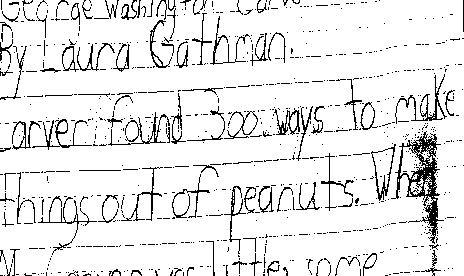 George Washington Carver
By Laura Gathman.
Carver found 300 ways to make
things out of peanuts. When
Mr. Carver was little, some